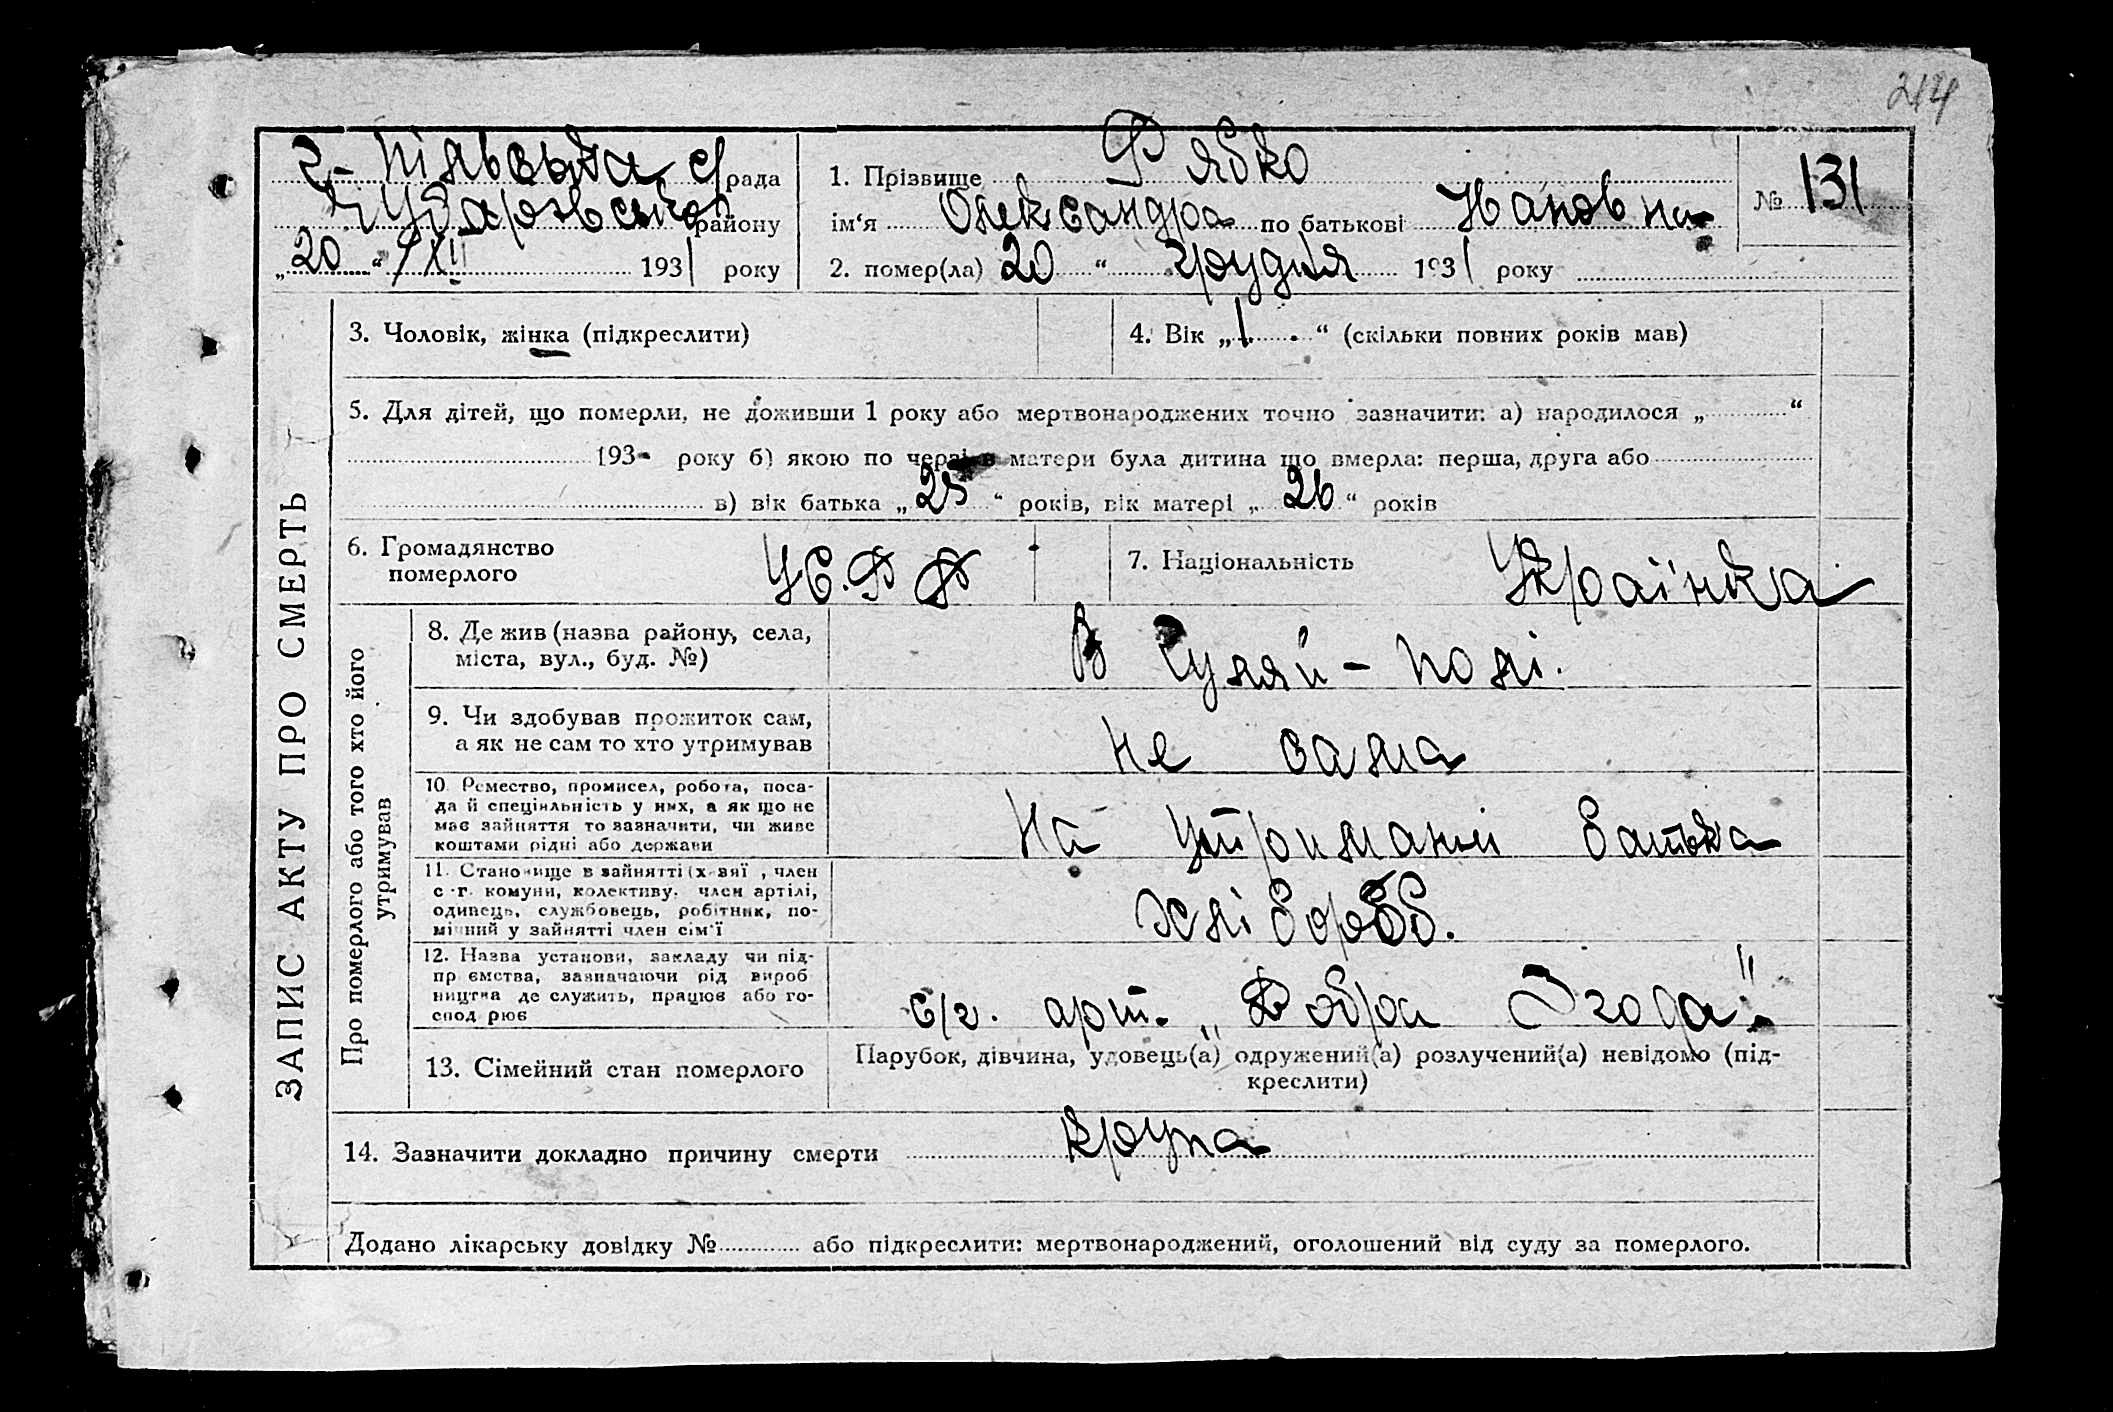 214
Г-Пільська с/рада
Чубарівський району
„20“ /XII 1931 року
1. Прізвище Рябко
ім‘я Олександра по батькові Іванівна
№ 131
2. помер(ла) 20 “ грудня 1931 року
ЗАПИС АКТУ ПРО СМЕРТЬ
3. Чоловік, жінка (підкреслити)
4. Вік „1“ (скільки повних років мав)
5. Для дітей, що померли, не доживши 1 року або мертвонароджених точно зазначити: а) народилося „ “
193 року б) якою по черзі в матери була дитина що вмерла: перша, друга або
в) вік батька „25“ років, вік матері „26“ років
6. Громадянство померлого У.С.Р.Р
7. Національність Українка
Про померлого або того хто його утримував
8. Де жив (назва району, села,
міста, вул., буд. №)
В Гуляй-полі.
9. Чи здобував прожиток сам,
а як не сам то хто утримував
не сама
10. Ремество, промисел, робота, поса-
да й спеціяльність у них, а як що не
має зайняття то зазначити, чи живе
коштами рідні або держави
На утриманні батька
11. Становище в зайнятті (х-зяї, член
с-г. комуни, колективу, член артілі,
одинець, службовець, робітник, по-
мічний у зайнятті член сім‘ї
хлібороб.
12. Назва установи, закладу чи під-
приємства, зазначаючи рід вироб
ництва де служить, працює або го-
спод рює
с/г. арт. „Добра Згода"
13. Сімейний стан померлого
Парубок, дівчина, удовець(а) одружений(а) розлучений(а) невідомо (під-
креслити)
14. Зазначити докладно причину смерти крупа
Додано лікарську довідку № або підкреслити: мертвонароджений, оголошений від суду за померлого.